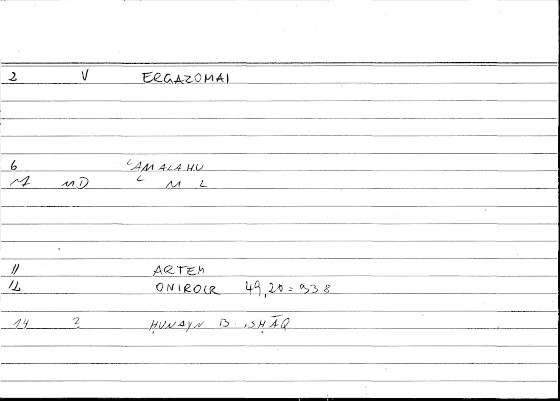 2 V ERGAZOMAI
6 ʿAMALAHU
MD ʿ M L
11 ARTEM
12 ONIROCR 49,20 = 93 8
14 2 ḤUNAYN B. ISḤĀQ